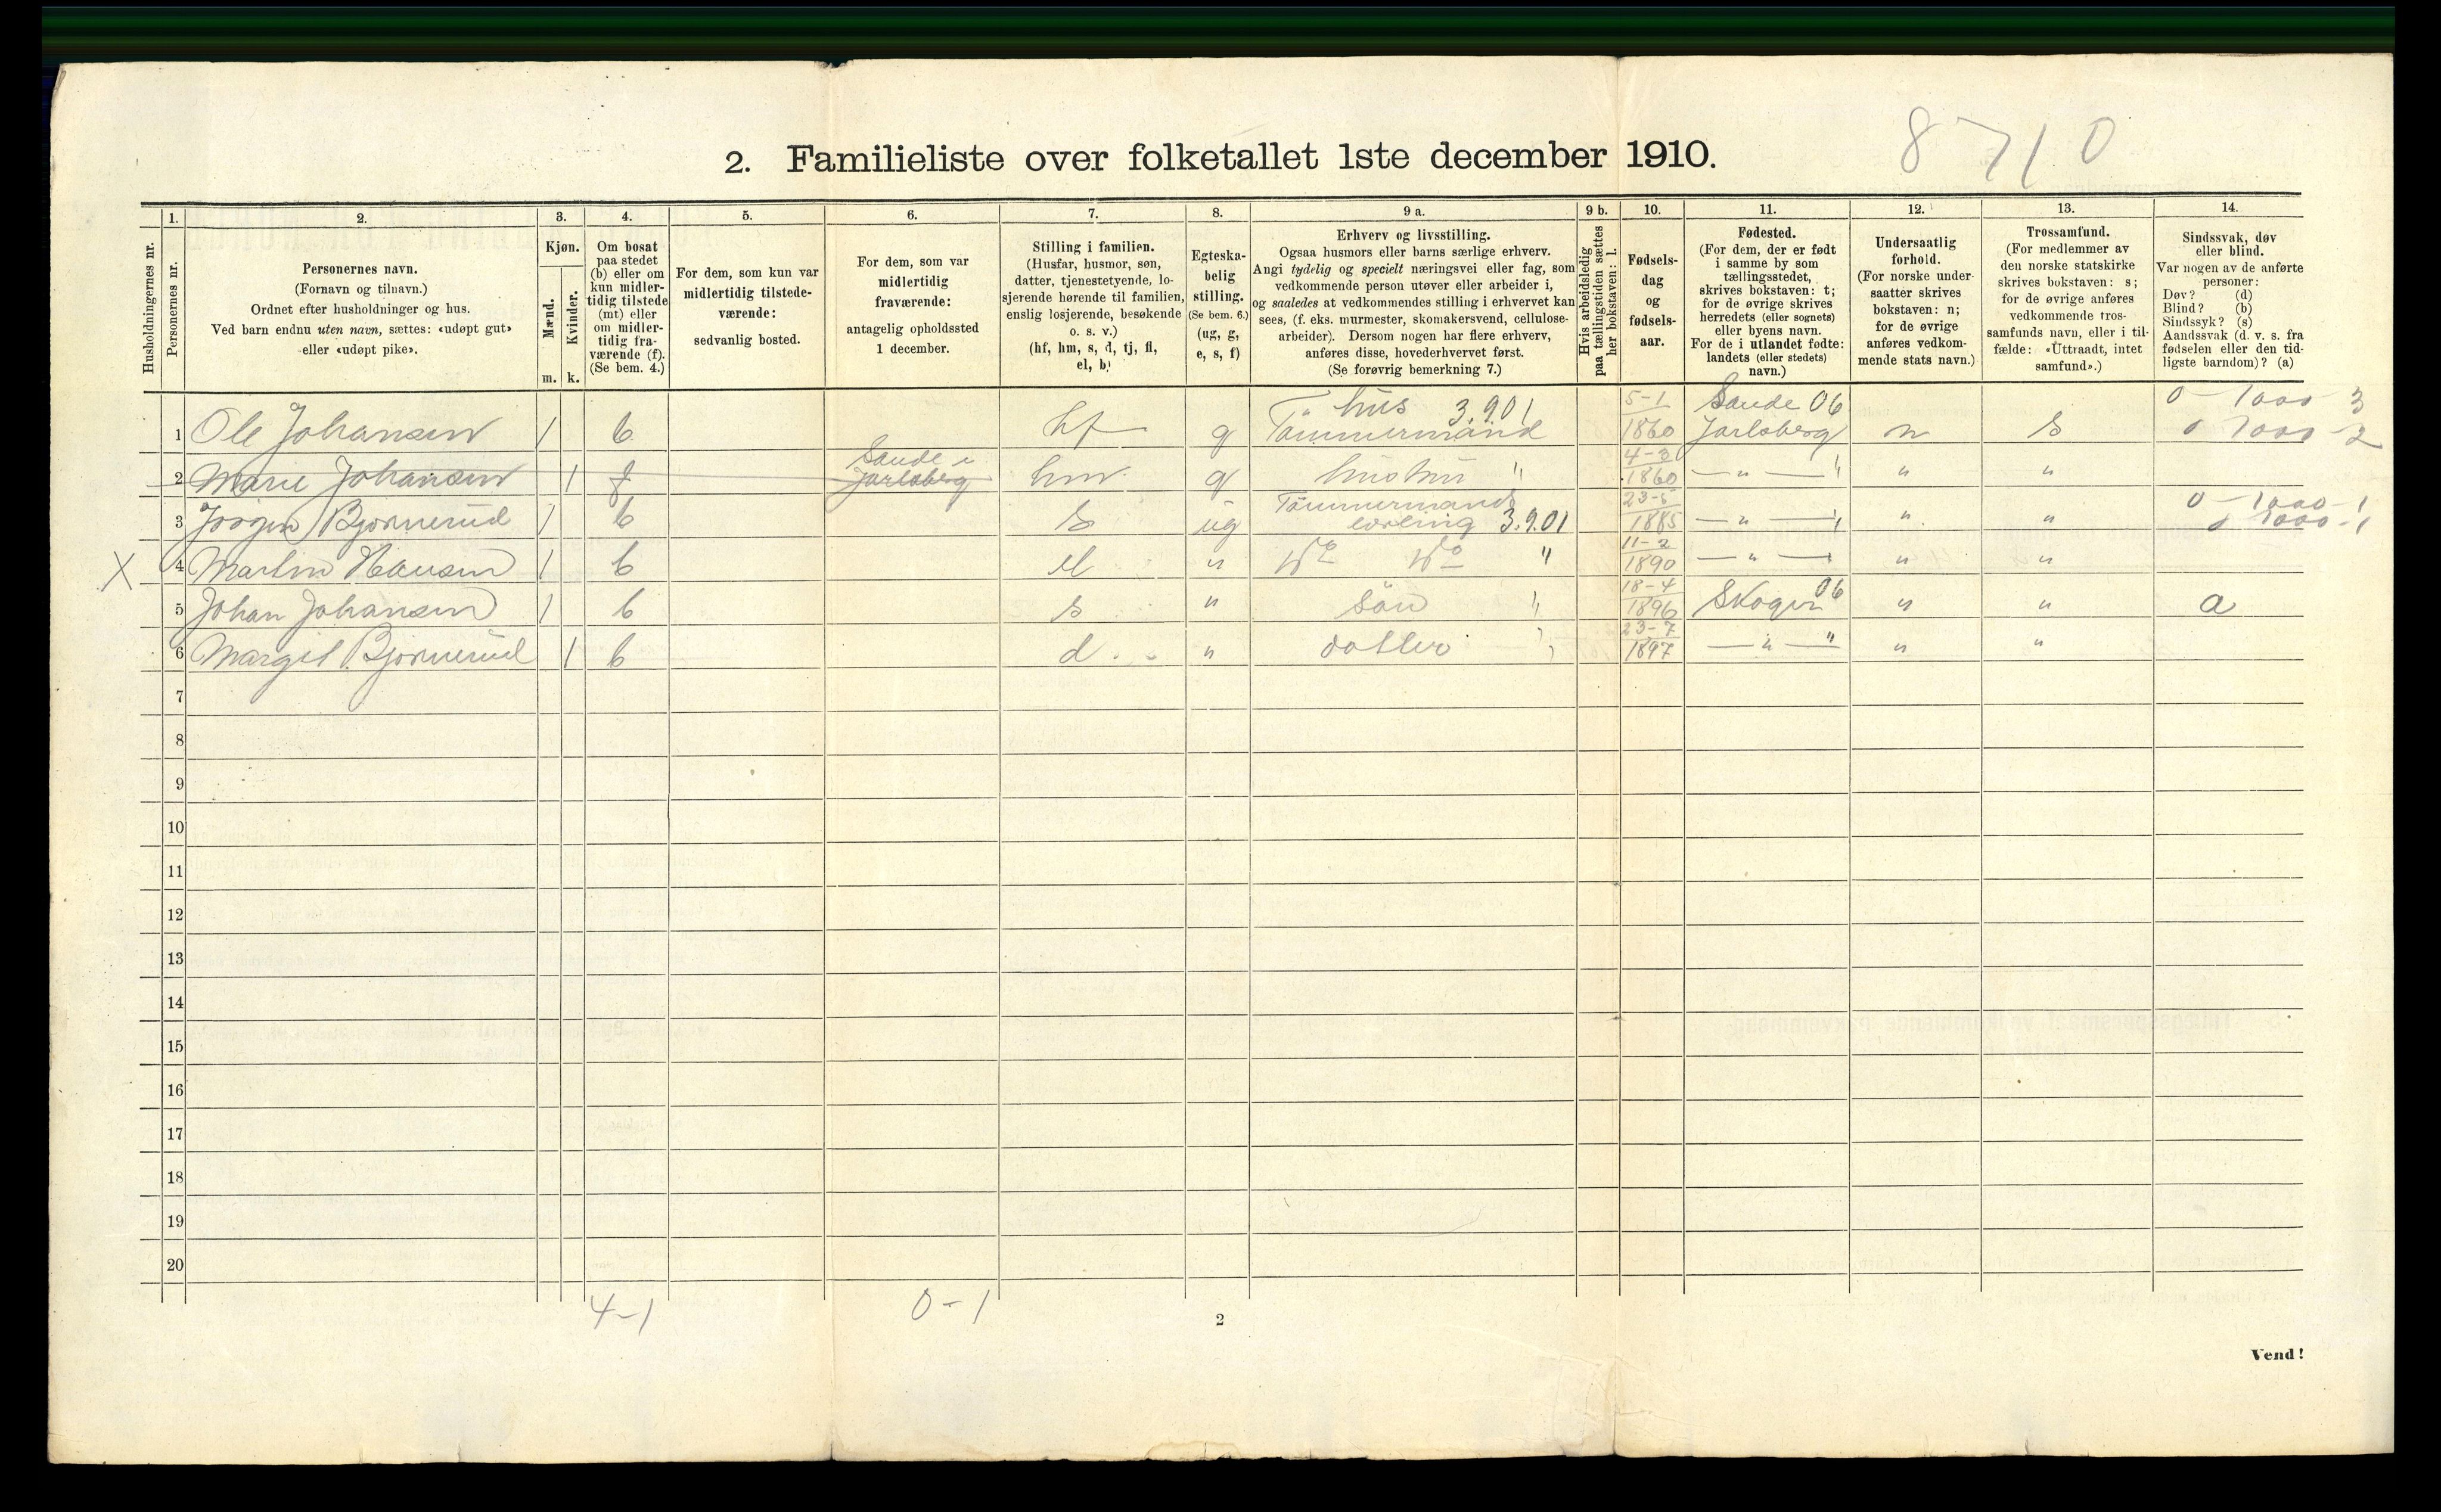 8710
2. Familieliste over folketallet 1ste december 1910.
Husholdningernes nr.
1.
Personernes nr.
2.
Personernes navn.
(Fornavn og tilnavn.)
Ordnet efter husholdninger og hus.
Ved barn endnu uten navn, sættes: «udøpt gut»
eller «udøpt pike».
3.
Kjøn.
Mænd.
Kvinder.
m. k.
4.
Om bosat
paa stedet
(b) eller om
kun midler-
tidig tilstede
(mt) eller
om midler-
tidig fra-
værende (f).
(Se bem. 4.)
5.
For dem, som kun var
midlertidig tilstede-
værende:
sedvanlig bosted.
6.
For dem, som var
midlertidig
fraværende:
antagelig opholdssted
1 december.
7.
Stilling i familien.
(Husfar, husmor, søn,
datter, tjenestetyende, lo-
sjerende hørende til familien,
enslig losjerende, besøkende
o. s. v.)
(hf, hm, s, d, tj, fl,
el, b)
8.
Egteska-
belig
stilling.
(Se bem. 6.)
(ug, g,
e, s, f)
9 a.
Erhverv og livsstilling.
Ogsaa husmors eller barns særlige erhverv.
Angi tydelig og specielt næringsvei eller fag, som
vedkommende person utøver eller arbeider i,
og saaledes at vedkommendes stilling i erhvervet kan
sees, (f. eks. murmester, skomakersvend, cellulose-
arbeider). Dersom nogen har flere erhverv,
anføres disse, hovederhvervet først.
(Se forøvrig bemerkning 7.)
9 b.
Hvis arbeidsledig
paa tællingstiden sættes
her bokstaven: l.
10.
Fødsels-
dag
og
fødsels-
aar.
11.
Fødested.
(For dem, der er født
i samme by som
tællingsstedet,
skrives bokstaven: t;
for de øvrige skrives
herredets (eller sognets)
eller byens navn.
For de i utlandet fødte:
landets (eller stedets)
navn.)
12.
Undersaatlig
forhold.
(For norske under-
saatter skrives
bokstaven: n;
for de øvrige
anføres vedkom-
mende stats navn.)
13.
Trossamfund.
(For medlemmer av
den norske statskirke
skrives bokstaven: s;
for de øvrige anføres
vedkommende tros-
samfunds navn, eller i til-
fælde: «Uttraadt, intet
samfund».)
14.
Sindssvak, døv
eller blind.
Var nogen av de anførte
personer:
Døv? (d)
Blind? (b)
Sindssyk? (s)
Aandssvak (d. v. s. fra
fødselen eller den tid-
ligste barndom)? (a)
hus 3.901 5-1 Sande 06 0-1000-3
1 Ole Johansen 1 b hf g Tömmermand 1860 Jarlsberg n s 0 1000-2
Sande i 4-3
2 Marie Johansen 1 f Jarlsberg hm g hustru " 1860 — " — " " "
Tömmermands 23-5 0-1000-1
3 Jörgen Bjørnerud 1 b s ug lærling 3.9.01 1885 — " — " " " 0 1000-1
11-2
X 4 Martin Hansen 1 b el " Do Do " 1890 — " — " "
18-4
5 Johan Johansen 1 b s " sön " 1896 Skoger 06 " " a
23-7
6 Margit Bjørnerud 1 b d " datter " 1897 — " — " " "
7
8
9
10
11
12
13
14
15
16
17
18
19
20
4-1 0-1
2
Vend!